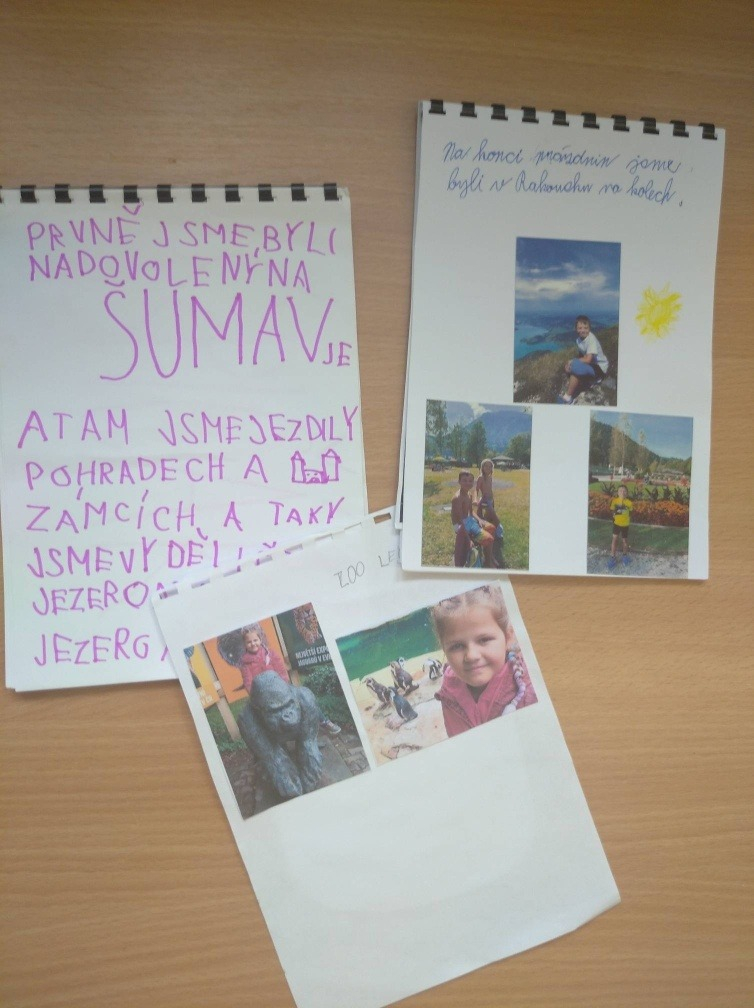 PRVNĚ JSME BYLI
NADOVOLENÝ NA
ŠUMAVJE
A TAM JSME JEZDILY
PO HRADECH A
ZÁMCÍCH A TAKY
JSME VYDĚLI
JEZERO
JEZER
Na konci prázdnin jsme
byli v Rakousku na kolech.
ZOO
NEJVĚTŠÍ